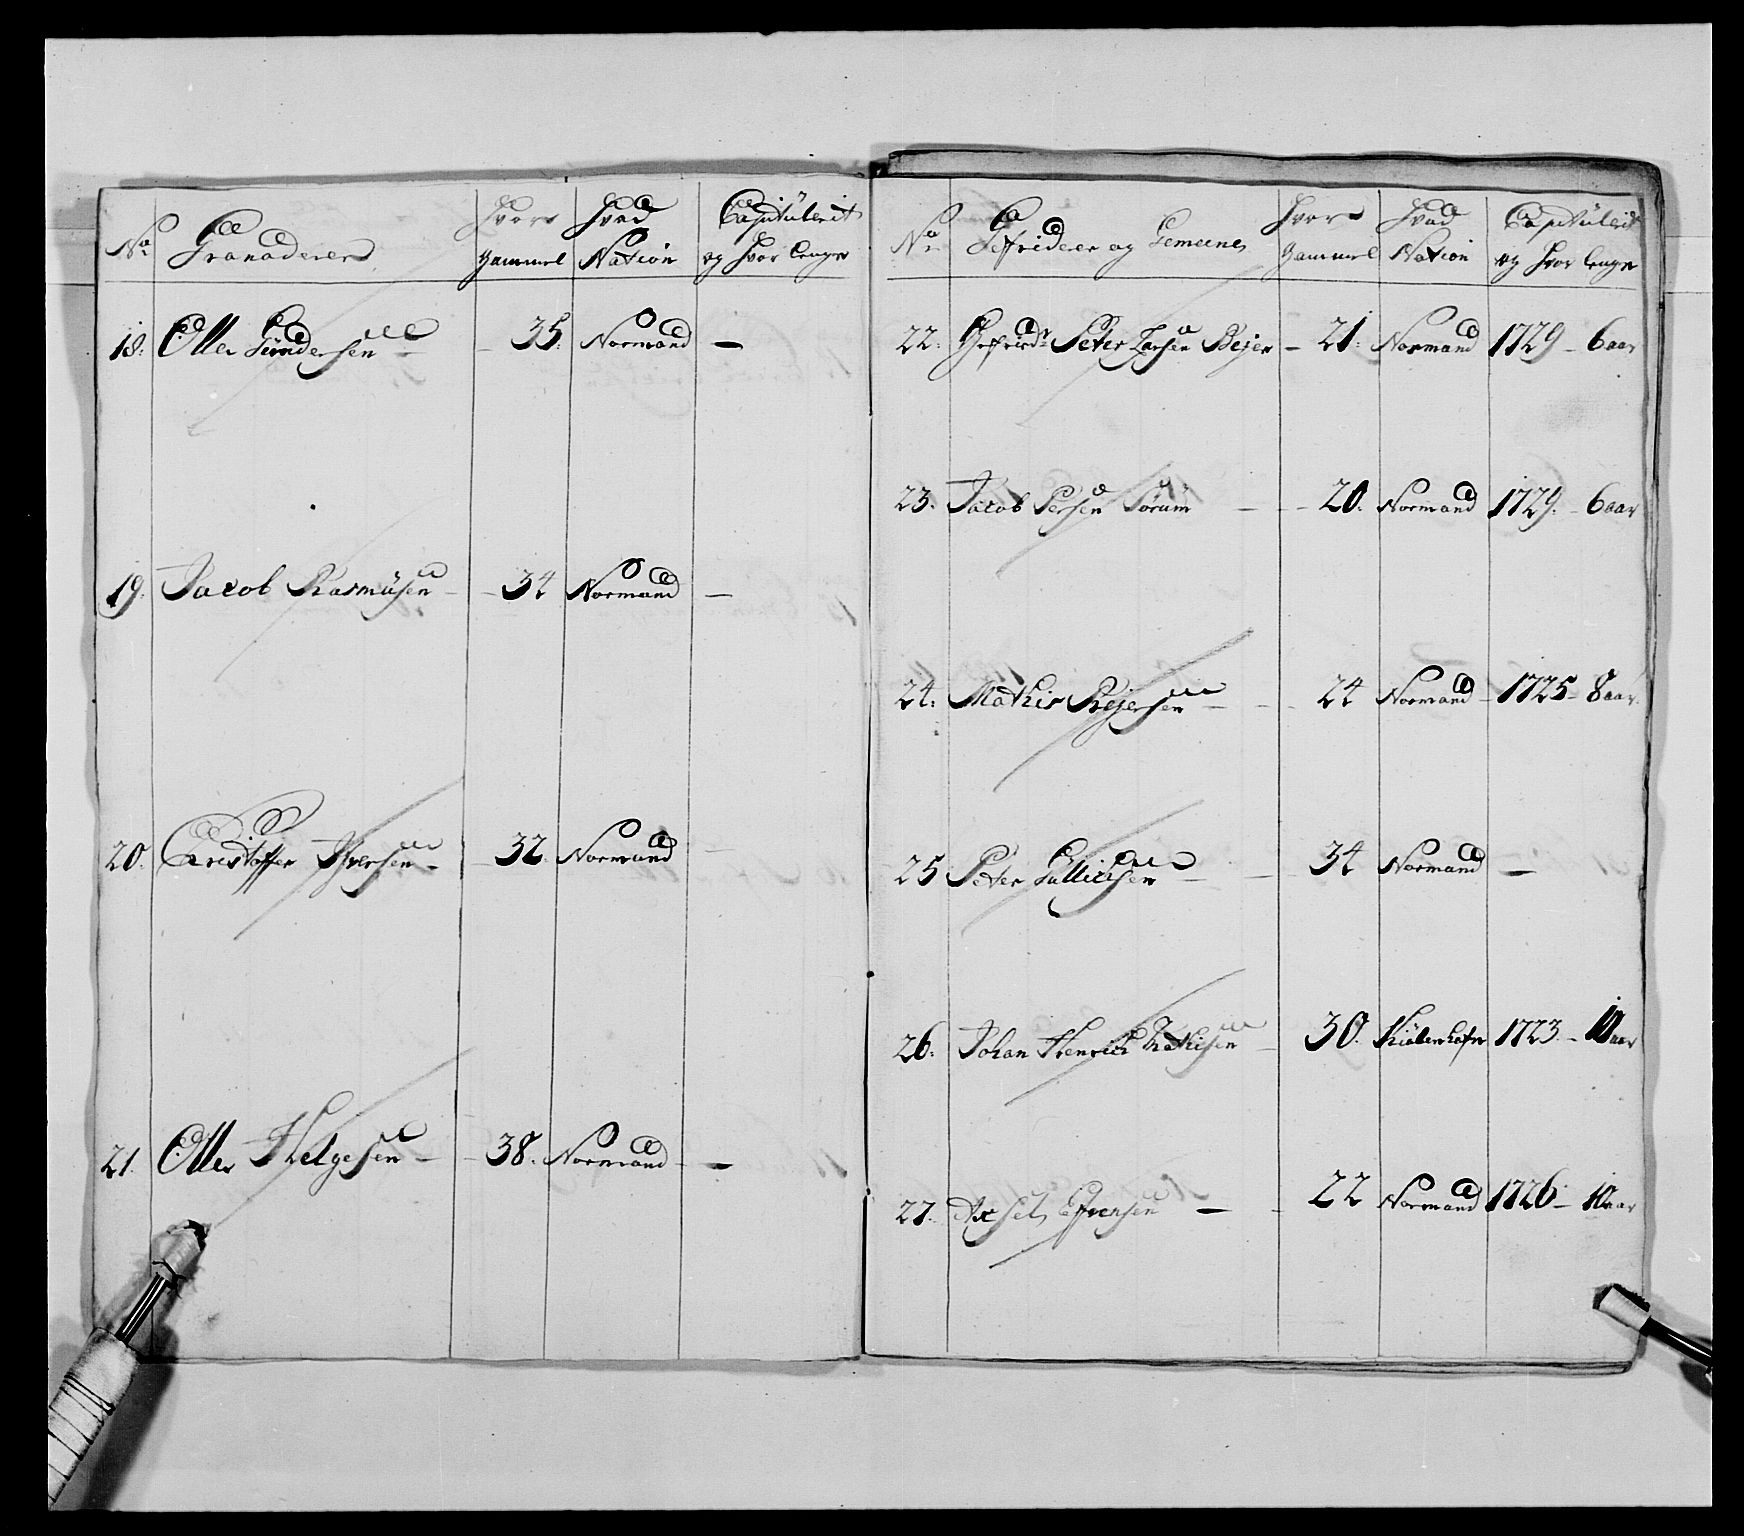 No Granaderer Hvor gammel Hvad Nation Capituleret og hvor lenge
18. Oller Gundersen - 35. Normand -
19. Jacob Rasmusen - 34 Normand -
20. Cristoffer Iffversen - 32. Normand -
21. Oller Helgesen - 38. Normand -
No Gefrider og Gemeene Hvor gammel Hvad Nation Capitulerit og hvor lenge
22. Gefrid. Peter Larsen Bejer - 21. Normand 1729 - 6 aar
23. Jacob Persen Sørum - 20. Normand 1729. - 6 aar
24. Mathis Rejersen - 24 Normand - 1725 - 8 aar
25 Peter Gullichsen - 34 Normand -
26. Johan Henrich Mathisen - 30. Kiøbenhafn 1723. - 10 aar
27. Axsel Efvensen - 22 Normand 1726 - 10 aar